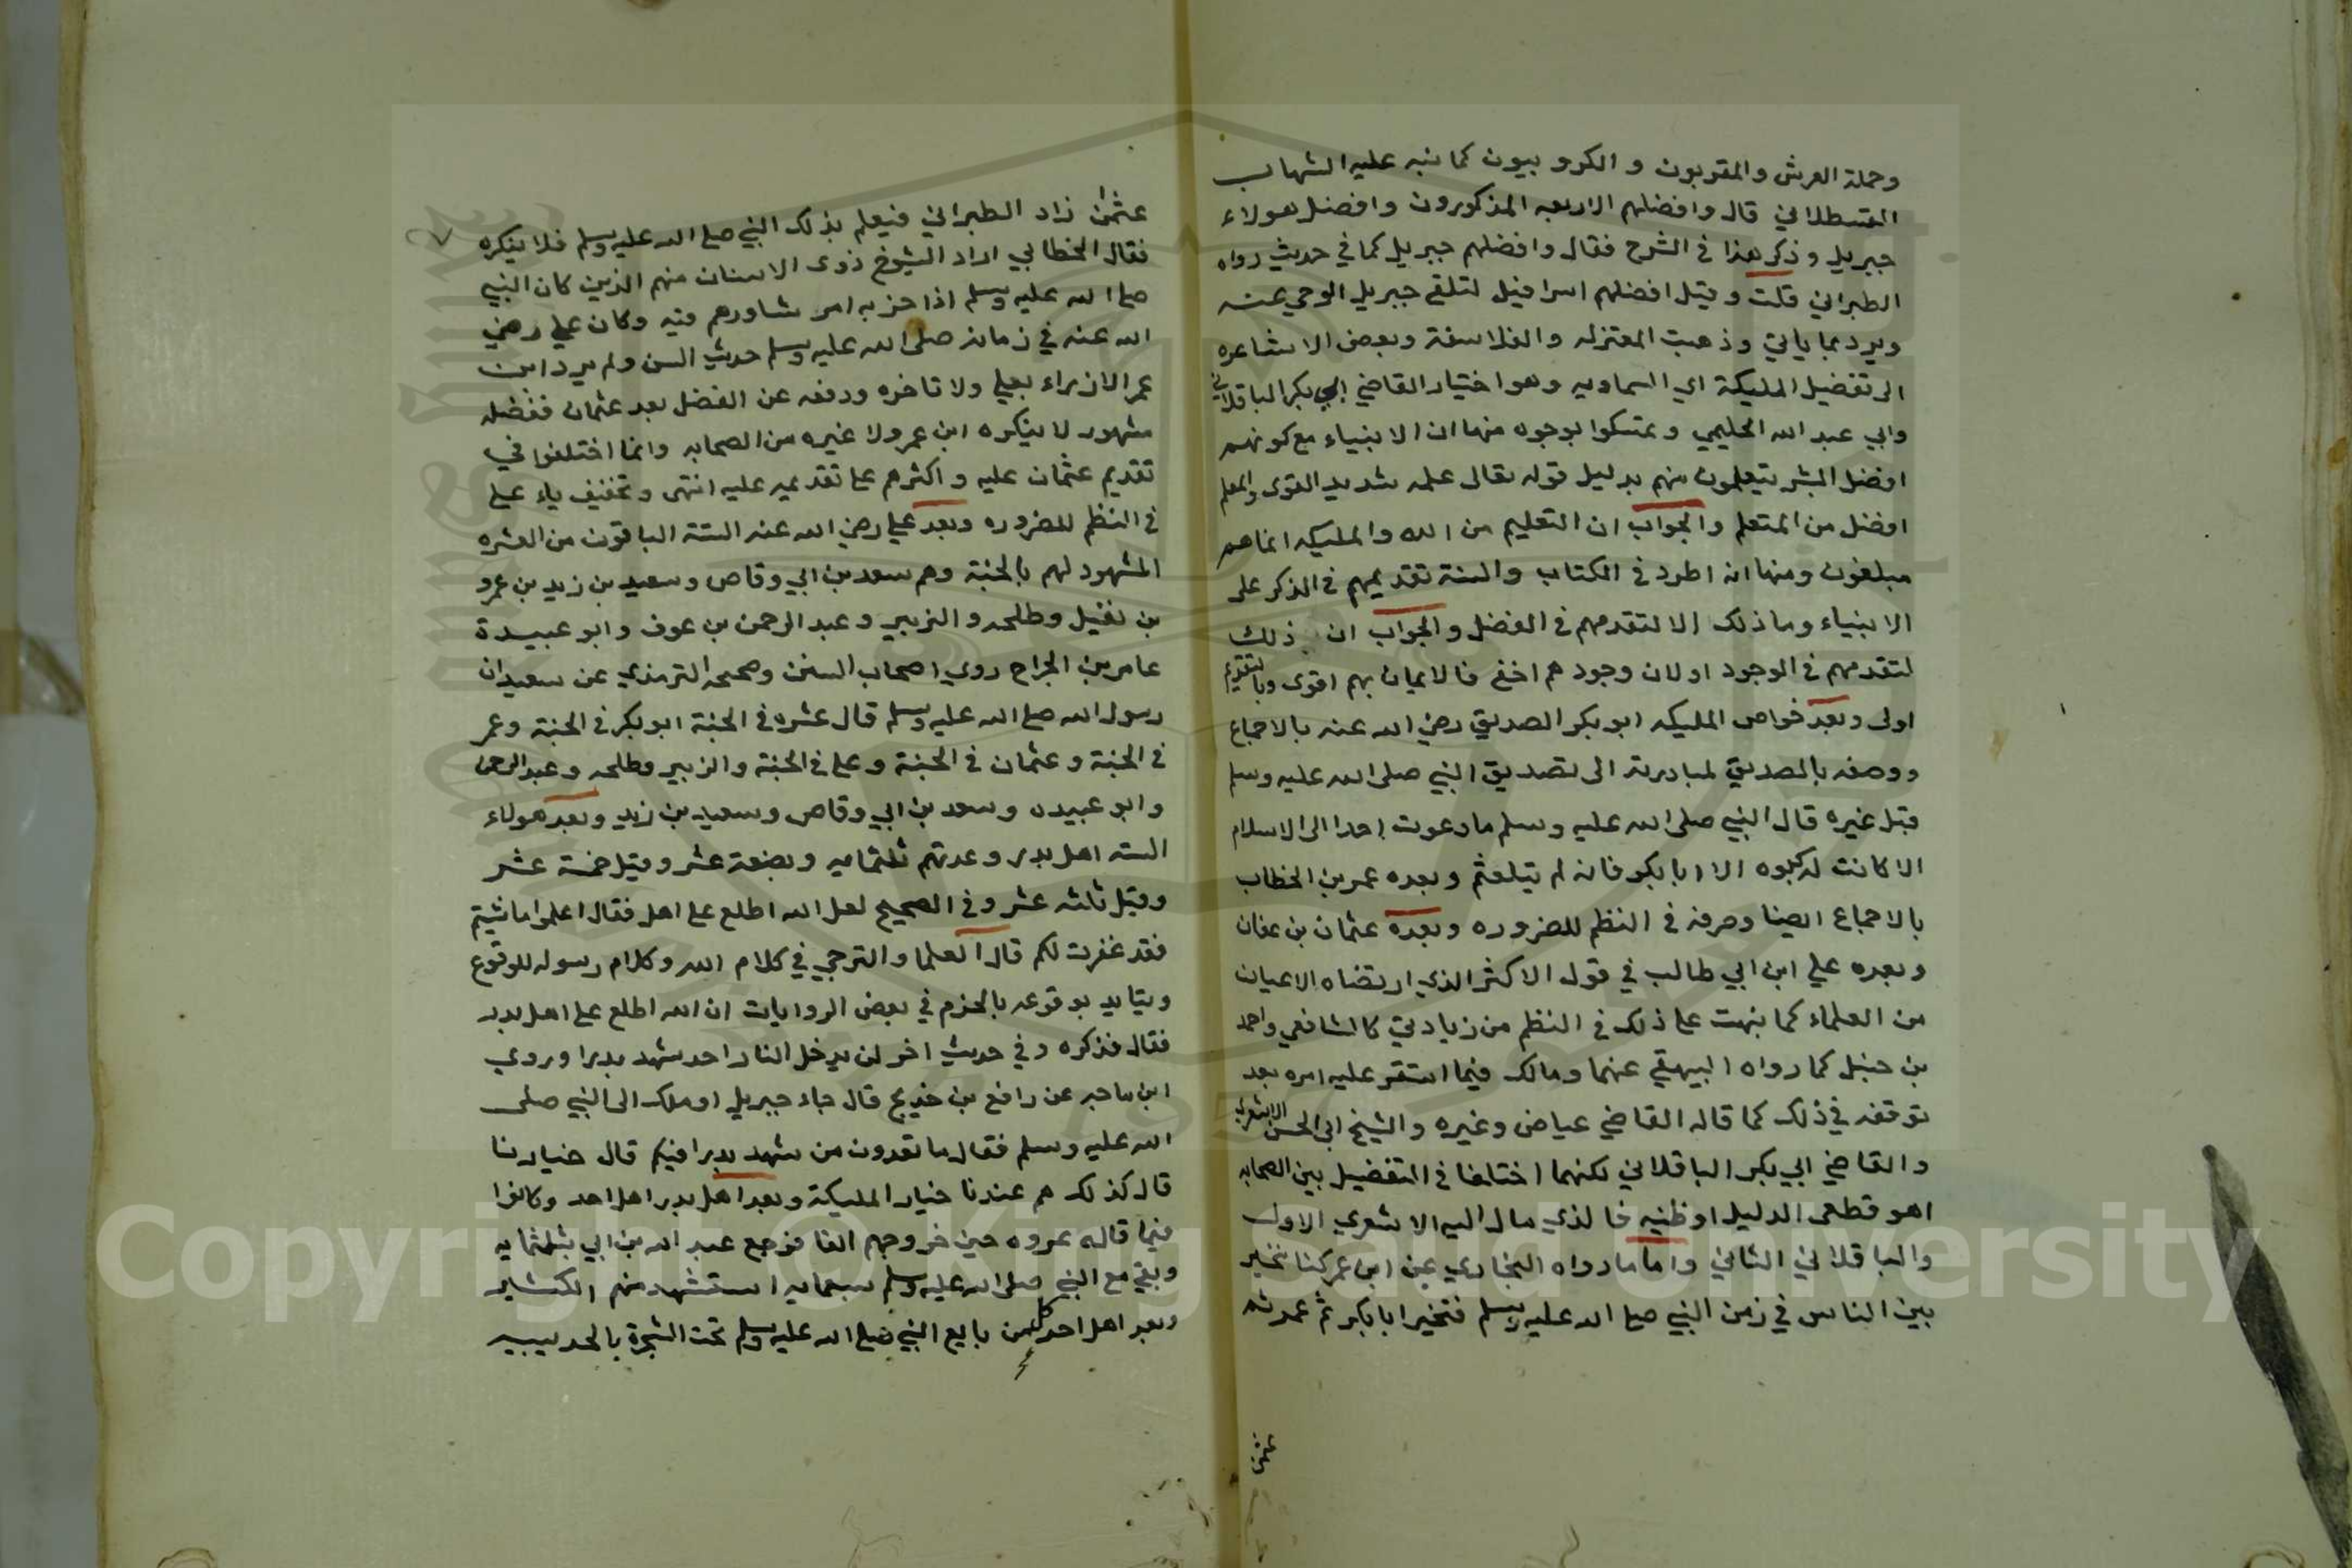 وحملة العرش والمقربون و الكروبيون كما نبه عليه الشهاب
القسطلاني قال وافضلهم الاربعه المذكورون وافضل هولاء
جبريل وذكر هذا في الشرح فقال وافضلهم جبريل كما في حديث رواه
الطبراني قلت وقيل افضلهم اسرافيل لتلقي جبريل الوحي عنه
ويرد بما ياتي وذهبت المعتزله والفلاسفة وبعض الاشاعره
الى تفضيل المليكة اي السماويه وهو اختيار القاضي ابي بكر الباقلاني
وابي عبد الله الحليمي وتمسكوا بوجوه منها ان الانبياء مع كونهم
افضل البشر يتعلمون منهم بدليل قوله تعالى علمه شديد القوى والمعلم
افضل من المتعلم والجواب ان التعليم من الله والمليكه انما هم
مبلغون ومنها انه اطرد في الكتاب والسنة تقديمهم في الذكر على
الانبياء وما ذلك الا لتقدمهم في الفضل والجواب ان ذلك
لتقدمهم في الوجود او لان وجودهم اخفى فالايمان بهم اقوى وبالتقديم
اولى وبعد خواص المليكه ابو بكر الصديق رضي الله عنه بالاجماع
ووصفه بالصديق لمبادرته الى تصديق النبي صلى الله عليه وسلم
قبل غيره قال النبي صلى الله عليه وسلم ما دعوت احدا الى الاسلام
الا كانت له كبوه الا ابا بكر فانه لم يتلعثم وبعده عمر بن الخطاب
بالاجماع ايضا وصرفه في النظم للضروره وبعده عثمان بن عفان
وبعده علي ابن ابي طالب في قول الاكثر الذي ارتضاه الاعيان
من العلماء كما نبهت على ذلك في النظم من زيادتي كالشافعي واحمد
بن حنبل كما رواه البيهقي عنهما ومالك فيما استقر عليه امره بعد
توقفه في ذلك كما قاله القاضي عياض وغيره والشيخ ابي الحسن الاشعري
والقاضي ابي بكر الباقلاني لكنهما اختلفا في التفضيل بين الصحابه
اهو قطعي الدليل او ظنيه فالذي مال اليه الاشعري الاول
والباقلاني الثاني واما ما رواه البخاري عن ابن عمر كنا نخير
بين الناس في زمن النبي صلى الله عليه وسلم فنخير ابا بكر ثم عمر ثم
عثمن
عثمن زاد الطبراني فيعلم بذلك النبي صلى الله عليه وسلم فلا ينكره
فقال الخطابي اراد الشيوخ ذوي الاسنان منهم الذين كان النبي
صلى الله عليه وسلم اذا حزبه امر شاورهم فيه وكان علي رضي
الله عنه في زمانه صلى الله عليه وسلم حديث السن ولم يرد ابن
عمر الازراء بعلي ولا تاخره ودفعه عن الفضل بعد عثمان ففضله
مشهور لا ينكره ابن عمر ولا غيره من الصحابه وانما اختلفوا في
تقديم عثمان عليه واكثرهم على تقديمه عليه انتهى وتخفيف ياء علي
في النظم للضروره وبعد علي رضي الله عنه الستة الباقون من العشره
المشهود لهم بالجنة وهم سعد بن ابي وقاص وسعيد بن زيد بن عمرو
بن نفيل وطلحه والزبير وعبد الرحمن بن عوف وابو عبيدة
عامر بن الجراح روي اصحاب السنن وصححه الترمذي عن سعيد ان
رسول الله صلى الله عليه وسلم قال عشره في الجنة ابو بكر في الجنة وعمر
في الجنة وعثمان في الجنة وعلي في الجنة والزبير وطلحه وعبد الرحمن
وابو عبيده وسعد بن ابي وقاص وسعيد بن زيد وبعد هولاء
السته اهل بدر وعدتهم ثلثمايه وبضعة عشر وقيل خمسة عشر
وقيل ثلثه عشر وفي الصحيح لعل الله اطلع على اهل فقال اعملوا ما شيتم
فقد غفرت لكم قال العلما والترجي في كلام الله وكلام رسوله للوقوع
ويتايد بوقوعه بالجزم في بعض الروايات ان الله اطلع على اهل بدر
فقال فذكره وفي حديث اخر لن يدخل النار احد شهد بدرا وروي
ابن ماجه عن رافع بن خديج قال جاء جبريل او ملك الى النبي صلى
الله عليه وسلم فقال ما تعدون من شهد بدرا فيكم قال خيارنا
قال كذلك هم عندنا خيار المليكة وبعد اهل بدر اهل احد وكانوا
فيما قاله عروه حين خروجهم الفا فرجع عبد الله بن ابي بثلثمايه
وبقي مع النبي صلى الله عليه وسلم سبعمايه استشهد منهم الكثير
وبعد اهل احد كل من بايع النبي صلى الله عليه وسلم تحت الشجرة بالحديبيه
Copyright © King Saud University